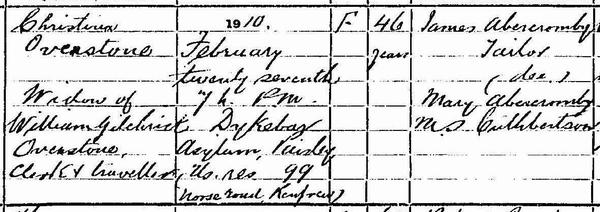 Christina
Overstone
Widow of
William Gilchrist
Overstone,
Clerk & traveller
1910.
February
twenty seventh
7 h. P.M.
Dykebar
Asylum, Paisley
Us. res. 99
Norse Road, Renfrew)
F
46
years
James Abercromby
Tailor
(dec.)
Mary Abercromby
M.S. Cuthbertson